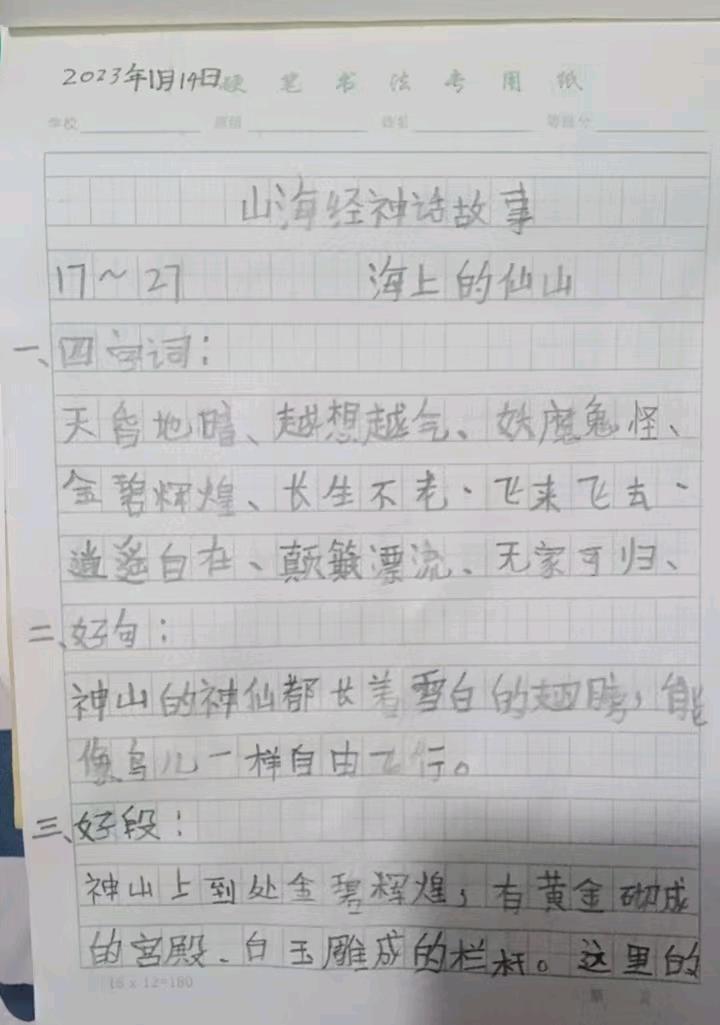 2023年1月14日 硬笔书法专用纸
学校 班级 姓名 等级分
山海经神话故事
17~27 海上的仙山
一、四字词：
天昏地暗、越想越气、妖魔鬼怪、
金碧辉煌、长生不老、飞来飞去、
逍遥自在、颠簸漂流、无家可归、
二、好句：
神山的神仙都长着雪白的翅膀，能
像鸟儿一样自由飞行。
三、好段：
神山上到处金碧辉煌，有黄金砌成
的宫殿、白玉雕成的栏杆。这里的
16 x 12=180
第 页